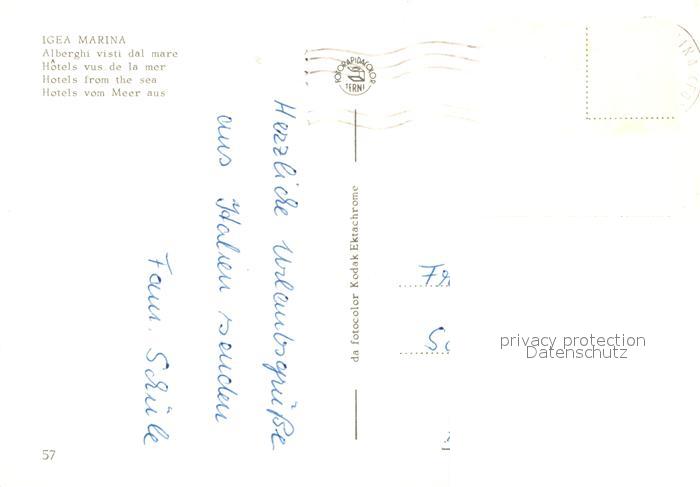 IGEA MARINA
Alberghi visti dal mare
Hôtels vus de la mer
Hotels from the sea
Hotels vom Meer aus
FOTORAPIDACOLOR
TERNI
Herzliche Urlaubsgrüße
aus Italien senden
Fam. Schüle
da fotocolor Kodak Ektachrome
privacy protection
Datenschutz
57